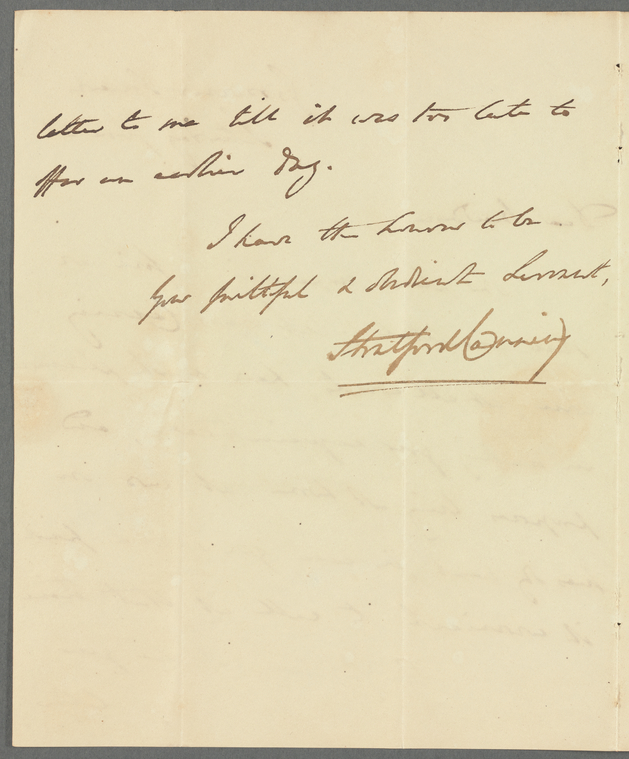 letter to me till it was too late to
offer an earlier day.
I have the honour to be
Your faithful & obedient Servant,
Stratford Canning